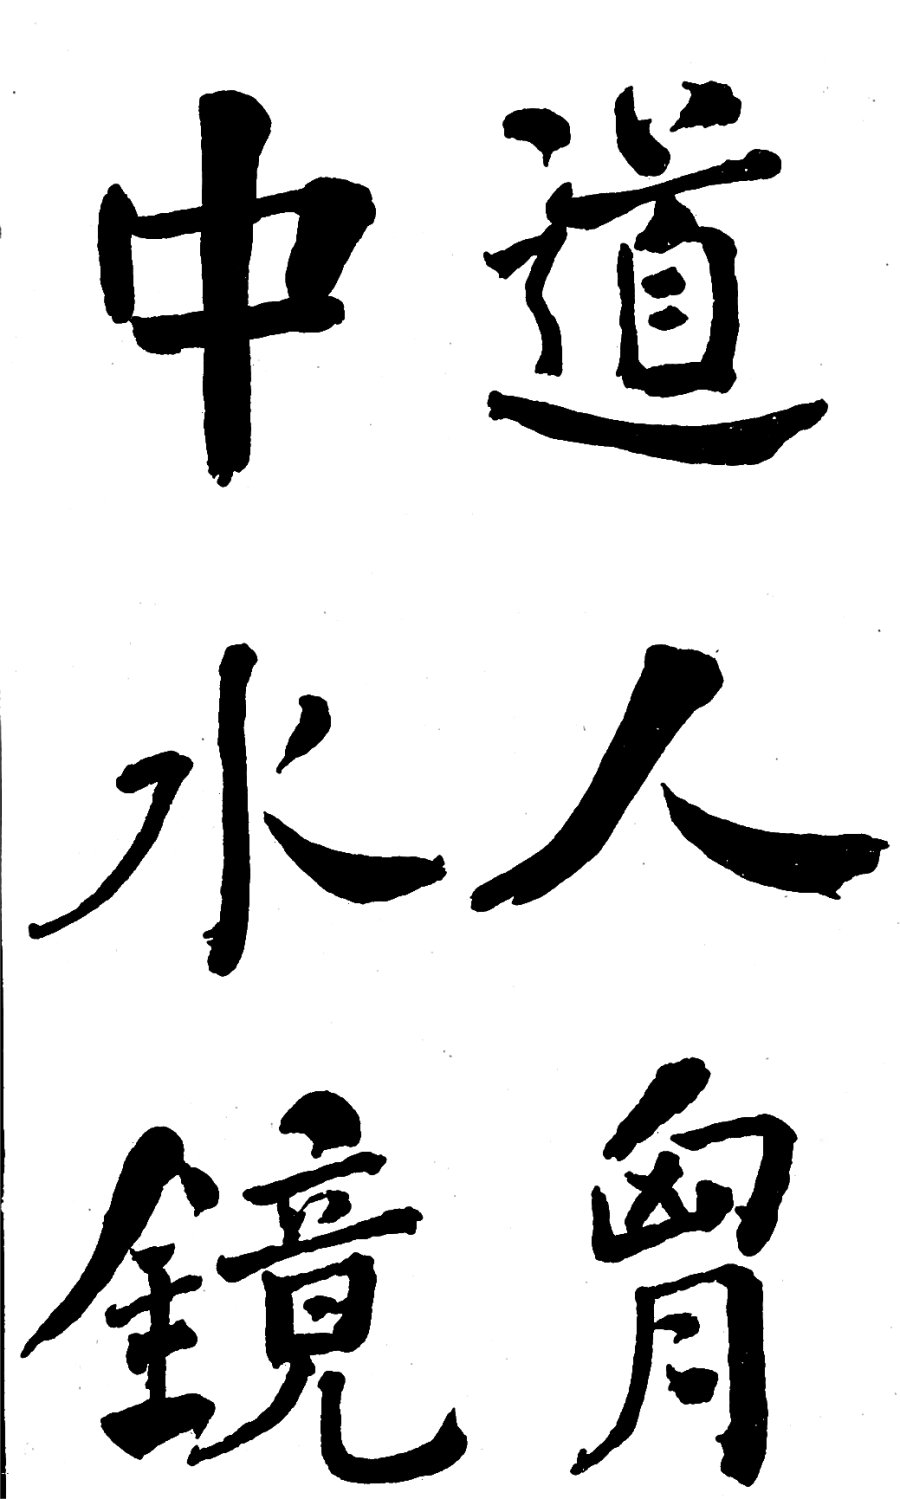 道人胷
中水鏡